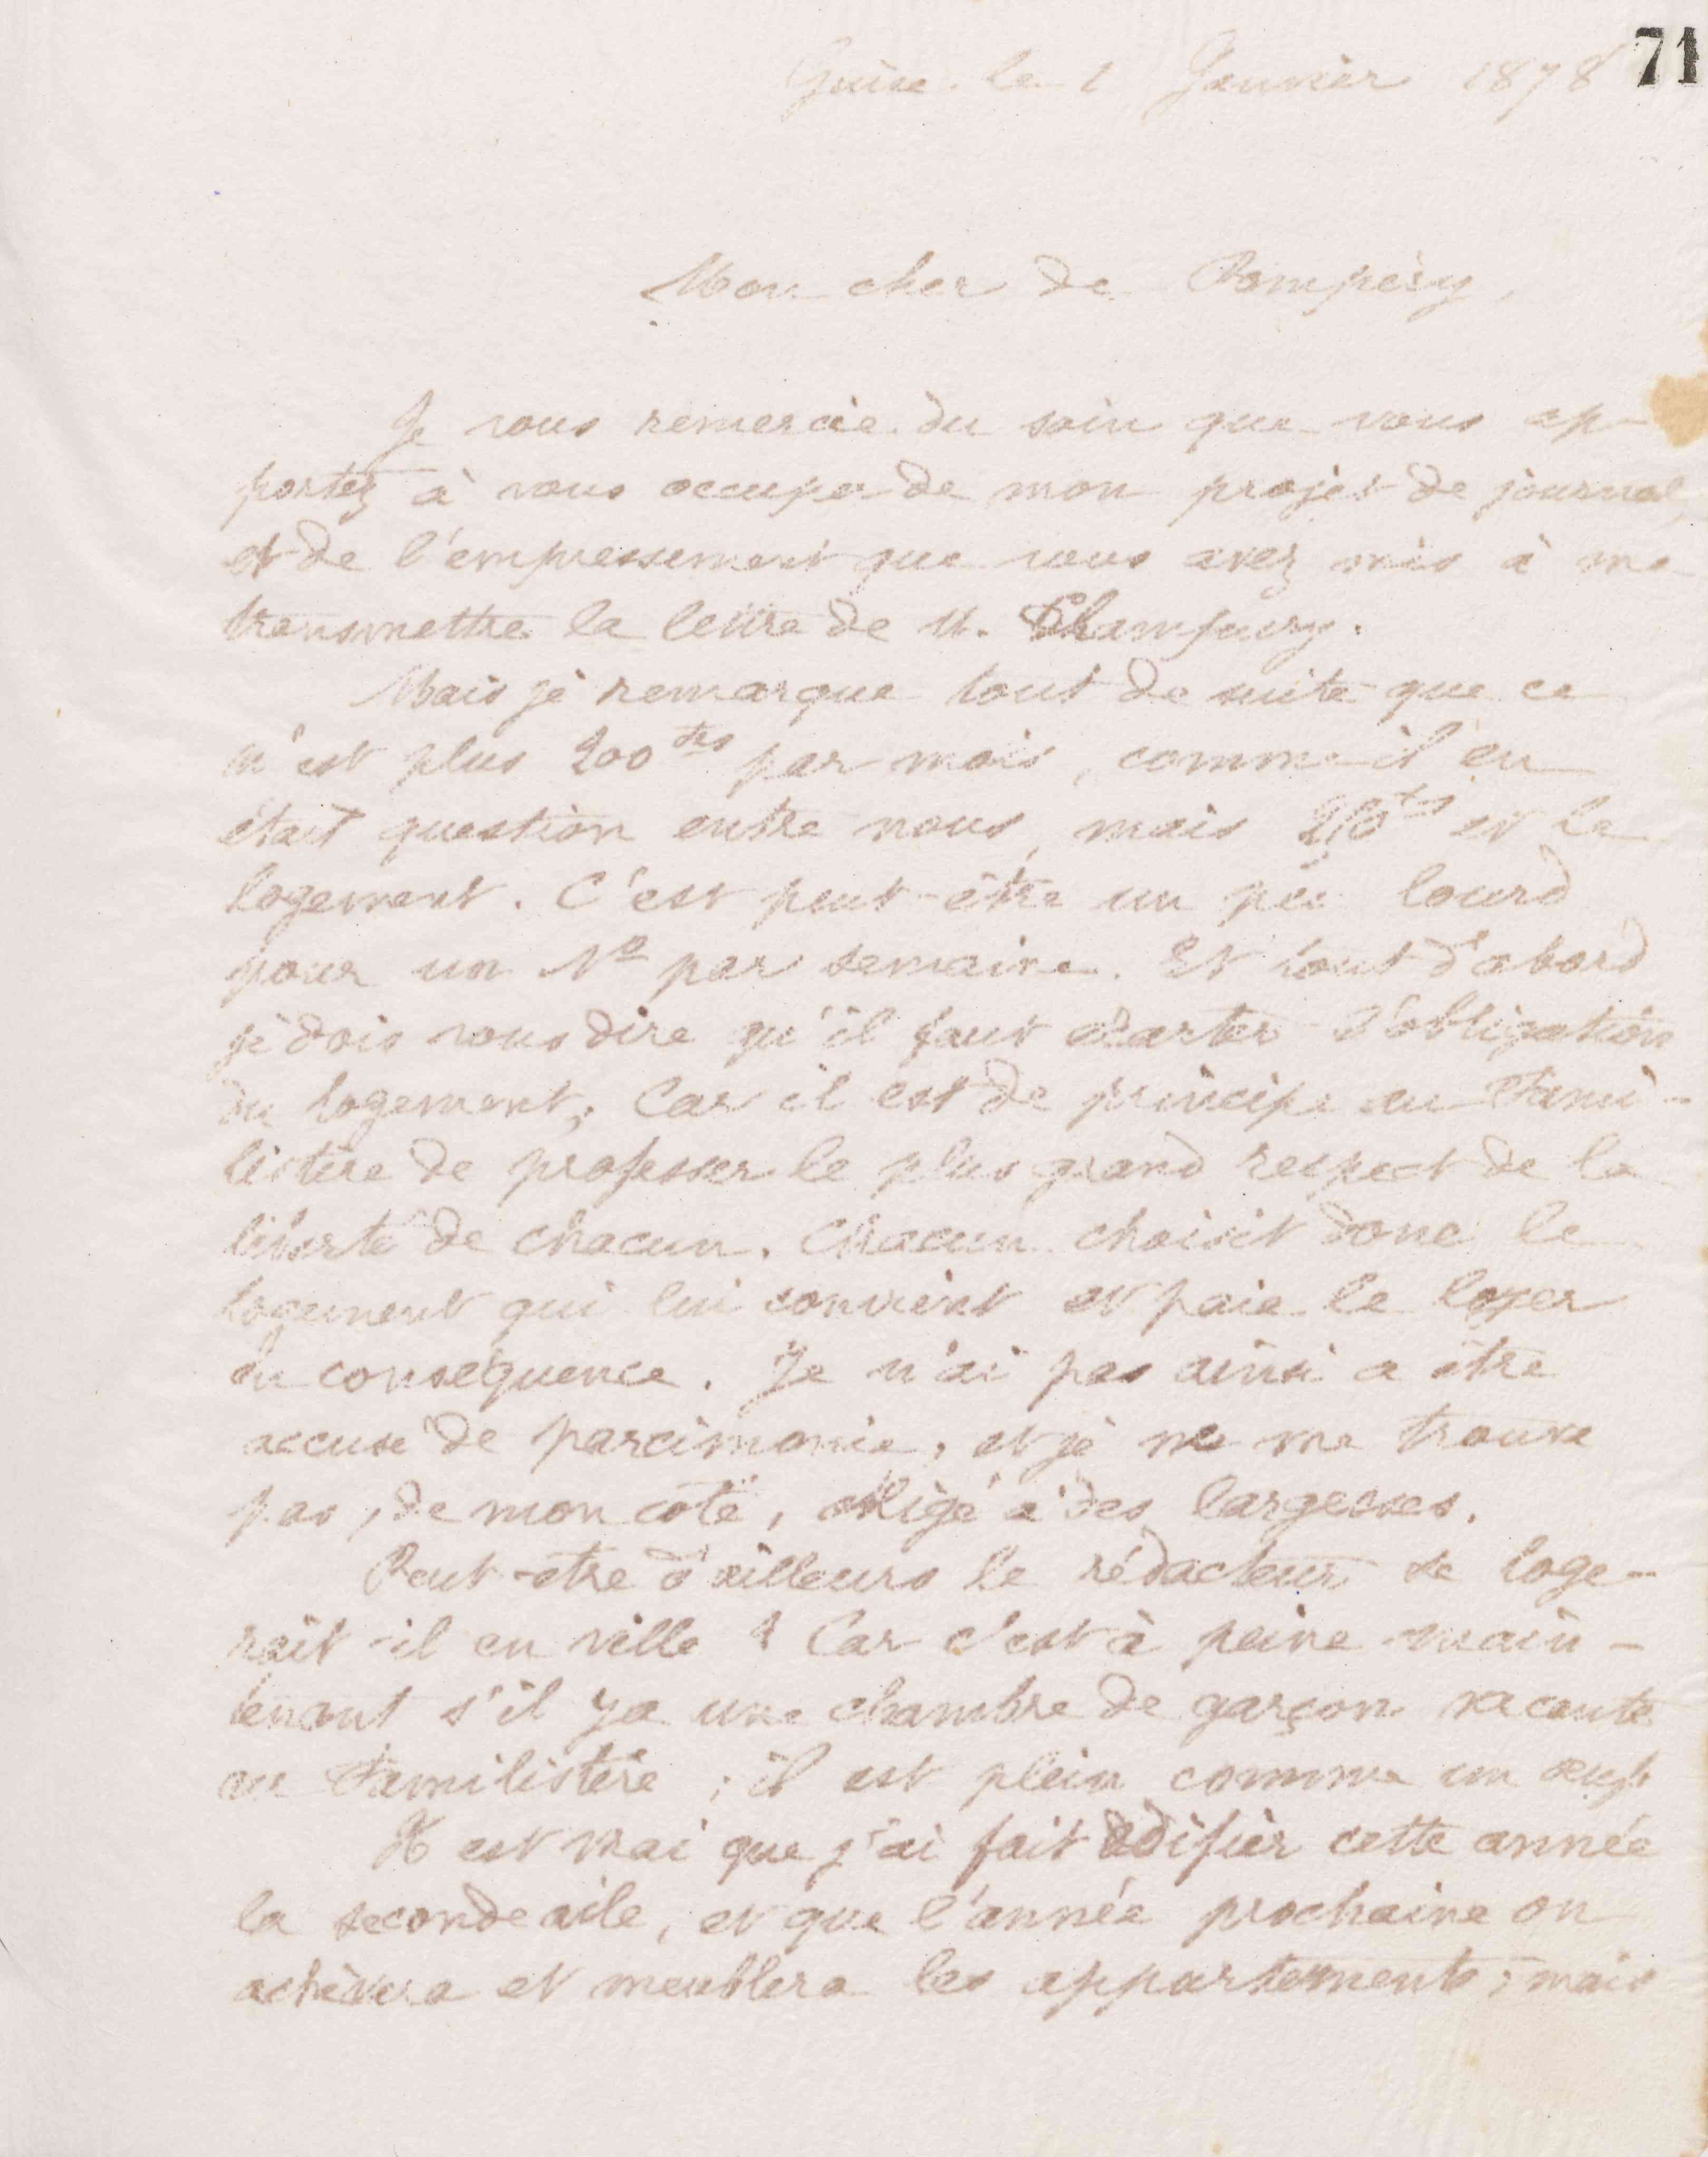 71
Guise, le 1 Janvier 1878
Mon cher de Pompéry,
Je vous remercie du soin que vous ap-
portez à vous occuper de mon projet de journal,
et de l'empressement que vous avez mis à me
transmettre la lettre de M. Champury.
Mais je remarque tout de suite que ce
n'est plus 200 frs par mois, comme il en
était question entre nous, mais frs et le
logement. C'est peut-être un peu lourd
pour un No par semaine. Et tout d'abord
je dois vous dire qu'il faut écarter l'obligation
du logement; Car il est de principe au Fami-
listère de professer le plus grand respect de la
liberté de chacun. Chacun choisit donc le
logement qui lui convient et paie le loyer
en conséquence. Je n'ai pas ainsi a être
accusé de parcimonie, et je ne me trouve
pas, de mon côté, obligé à des largesses.
Peut-être d'ailleurs le rédacteur se loge-
rait-il en ville ? Car c'est à peine main-
tenant s'il y a une chambre de garçon vacante
au Familistère ; il est plein comme un œuf.
Il est vrai que j'ai fait édifier cette année
la seconde aile, et que l'année prochaine on
achèvera et meublera les appartements; mais